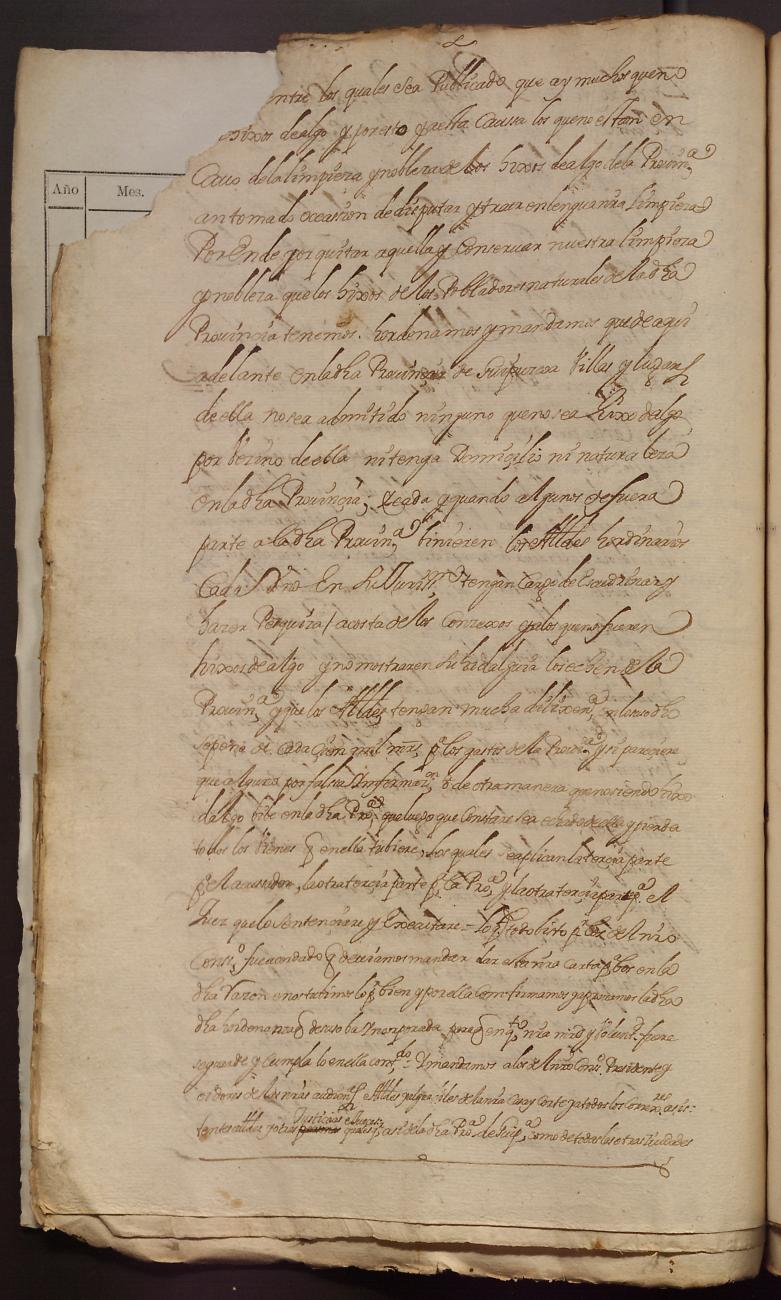 Año Mes.
entre los quales sea Publicado que ay muchos que no
hixos dealgo y por esto y aesta Caussa los que no estan en
Cauo dela limpieza y nobleza de los hixos dealgo dela Provinª
an tomado occassion de disputar y traer en lengua nra limpieza
Por Ende por quitar aquella y Conseruar nuestra limpieza
y nobleza que los hixos de los Pobladores naturales de la dha
Provinçia tenemos. hordenamos y mandamos que de aqui
adelante en la dha Provinçia de Guipuzcoa Villas y lugares
de ella no sea admitido ninguno que no sea hixo dalgo
por Vezino de ella ni tenga Domiçilio ni naturaleza
en la dha Provinçia; y cada y quando algunos de fuera
parte a la dha Provinª Vinieren los Alldes hordinarios
Cada Vno En su Jurisson tengan Cargo de Escudriñar y
hazer Pesquiza a costa de los Conzexos y a los que no fueren
hixos de algo y no mostraren su hidalguia los echen de la
Provinª y que los Alldes tengan mucha dilixenª en lo suso dho
so pena de Cada Çien mil mrs, pª los gastos de la Provª y si pareçiere
que alguno por falssa Ynformaon, o de otra manera que no siendo hixo
dalgo bibe en la dha Proª que luego que Constare sea echado de ella y pierda
todos los bienes q en ella tubiere, los quales se aplican la terçia parte
pª el acusador, la otra terçia parte pª la Proª, y la otra terçia parte pª el
Juez que lo Sentençiare y Executare = lo ql todo bisto pr los de el nro
Conso, fue acordado q deuiamos mandar dar esta nra Carta pª bos en la
dha razon e nos tubimos lo pr bien y por ella Confirmamos y aprouamos la dha
dha hordenanza q de suso ba Yncorporada para q en qto nra mrd y Volund. fuere
se guarde y Cumpla lo en ella contdo: Y mandamos a los de el nro Cons. Presidente y
oidores de las nras audienças Alldes Alguaçiles de la nra Cassa y Corte y a todos los Correxres asis=
tentes alldes y otras Justiçias e Juezes qualesqr, asi de la dha Proª de Guipª, como de todas las otras Ciudades